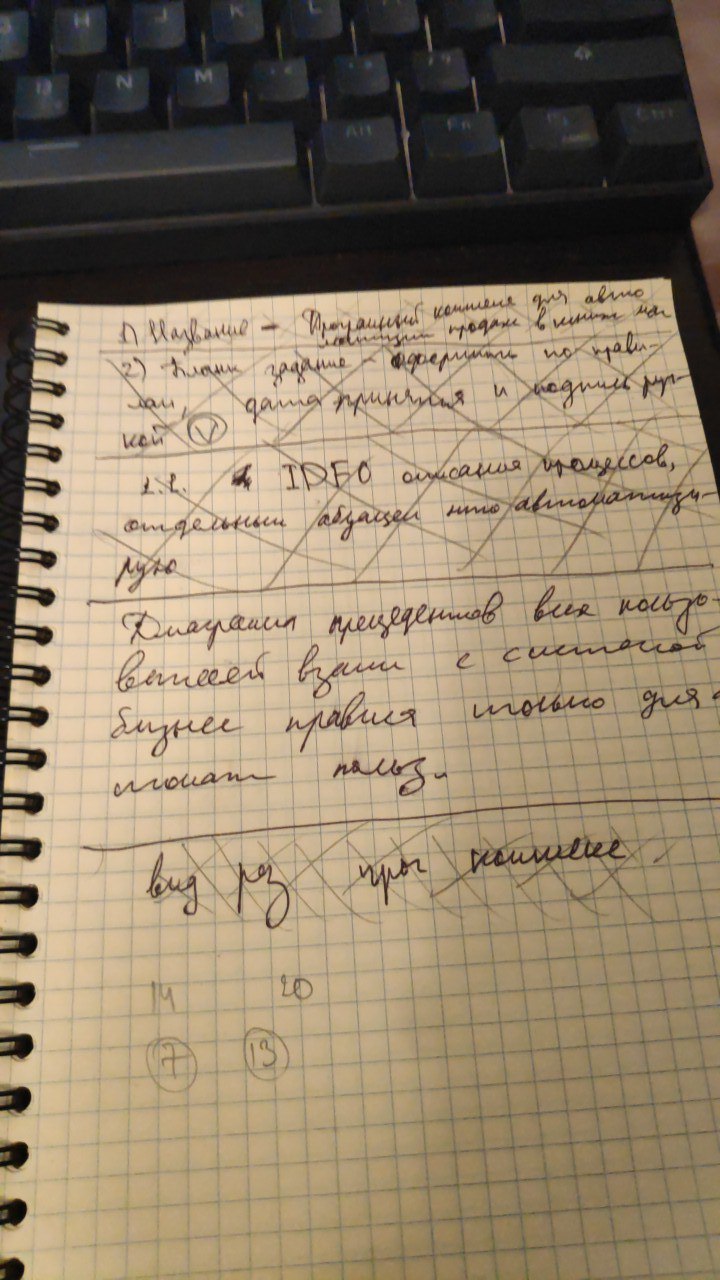 H J K L
B N M
Alt Fn Ctrl
1) Название – Програмный комплекс для авто
матизации продаж в книжн маг
2) Бланк задание – оформить по прави-
лам, дата принятия и подпись руч-
кой V
1.2. IDF0 описания процессов,
отдельный абзацем что автоматизи-
рую
Диаграмма прецедентов всех пользо-
вателей взаим с системой
бизнес правила только для
польз.
вид рз прог комплекс
14 20
7 13